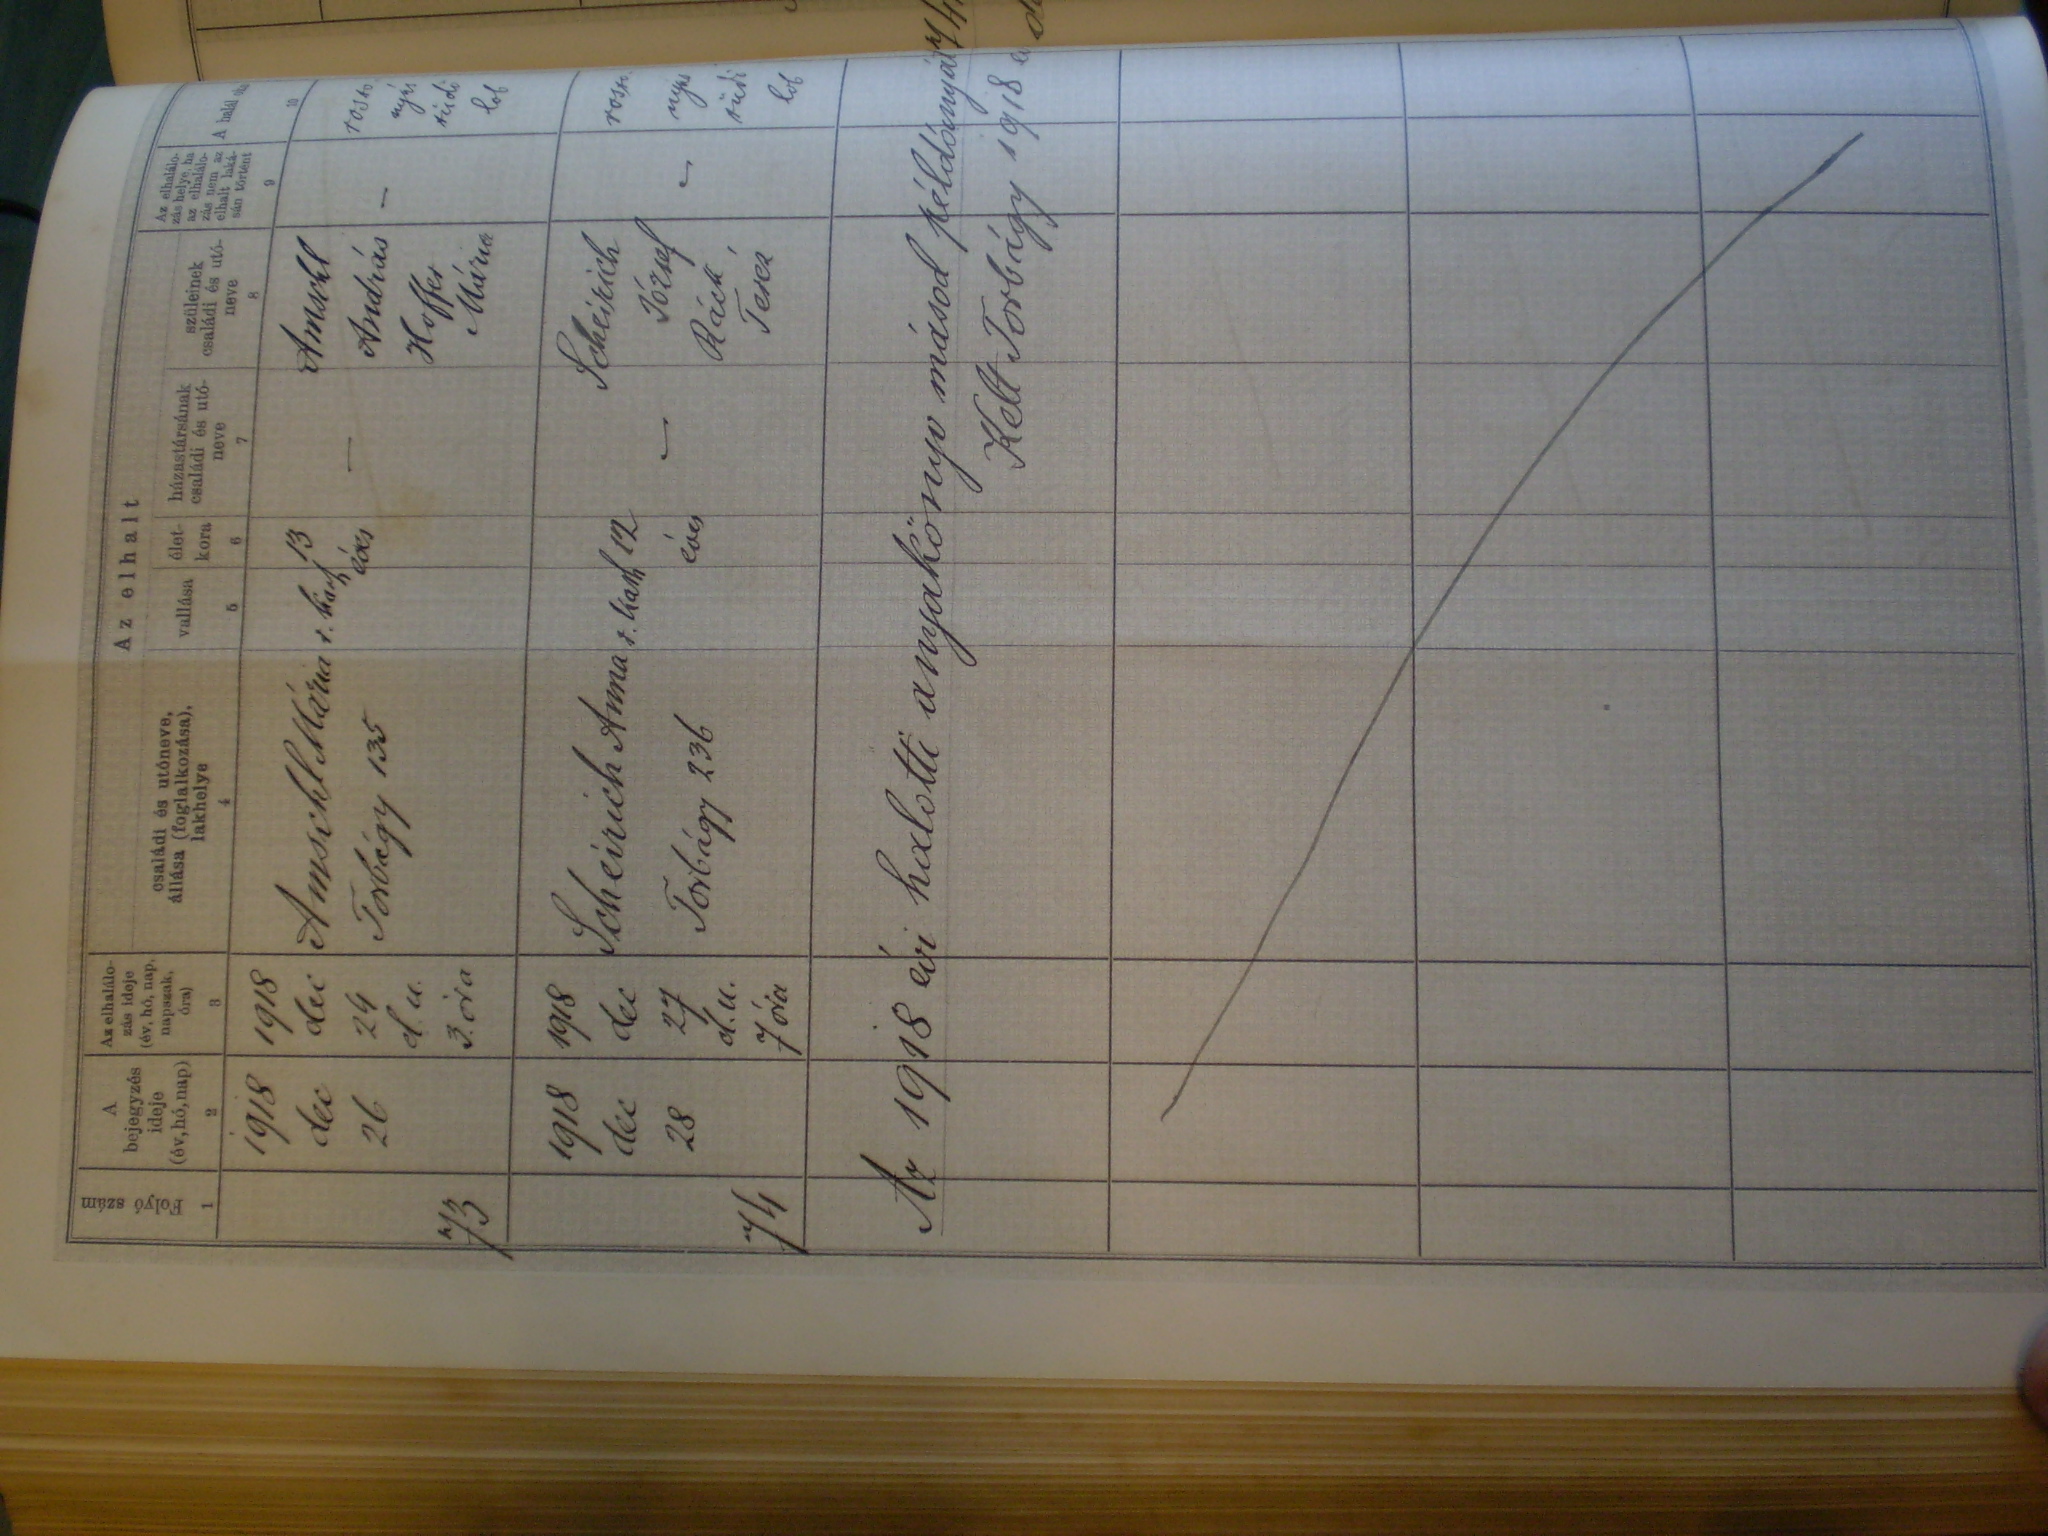 Az elhalt
Folyó szám
A bejegyzés ideje (év, hó, nap)
Az elhalálo-
zás ideje
(év, hó, nap,
napszak,
óra)
családi és utóneve,
állása (foglalkozása),
lakhelye
vallása
élet-
kora
házastársának
családi és utó-
neve
szüleinek
családi és utó-
neve
Az elhalálo-
zás helye, ha
az elhalálo-
zás nem az
elhalt laká-
sán történt
A halál oka
1 2 3 4 5 6 7 8 9 10
73
1918
dec
26
1918
dec
24
d. u.
3. óra
Amschl Mária
Torbágy 135
r. kath
13
éves
—
Amschl
András
Hoffer
Mária
—
nyás
tüdő
lob
74
1918
dec
28
1918
dec
27
d. u.
7 óra
Scheirich Anna
Torbágy 236
r. kath
12
éves
—
Scheirich
József
Rack
Teréz
—
nyás
tüdő
lob
Az 1918 évi halotti anyakönyv másod példányát 74
Kelt Torbágy 1918